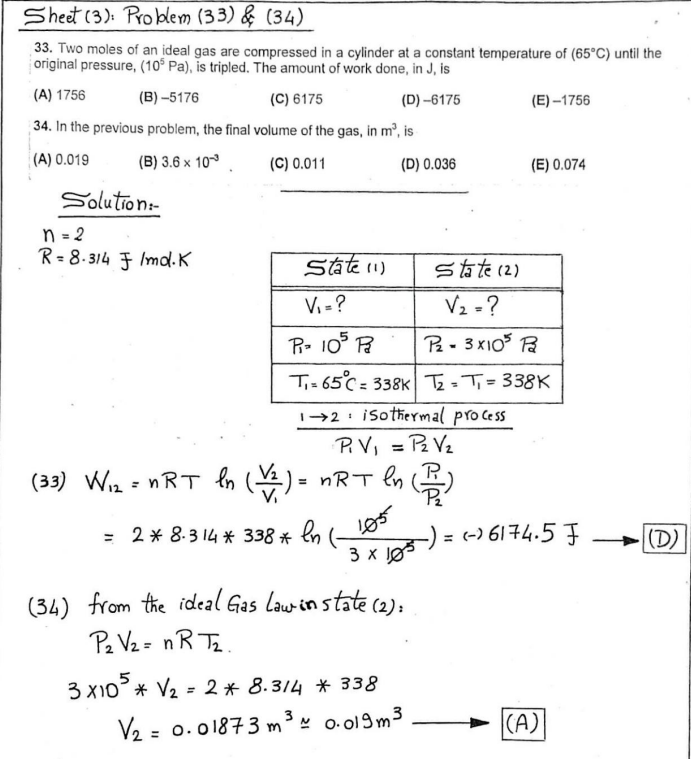 Sheet (3): Problem (33) & (34)
33. Two moles of an ideal gas are compressed in a cylinder at a constant temperature of (65°C) until the
original pressure, (10⁵ Pa), is tripled. The amount of work done, in J, is
(A) 1756 (B) –5176 (C) 6175 (D) –6175 (E) –1756
34. In the previous problem, the final volume of the gas, in m³, is
(A) 0.019 (B) 3.6 x 10⁻³ (C) 0.011 (D) 0.036 (E) 0.074
Solution:-
n = 2
R = 8.314 J /mol.K
State (1) State (2)
V₁ = ? V₂ = ?
P₁ = 10⁵ Pa P₂ = 3 x10⁵ Pa
T₁ = 65°C = 338K T₂ = T₁ = 338K
1→2 : isothermal process
P₁ V₁ = P₂ V₂
(33) W₁₂ = nRT ln (V₂/V₁) = nRT ln (P₁/P₂)
= 2 * 8.314 * 338 * ln (10⁵/3 x 10⁵) = (-) 6174.5 J → (D)
(34) from the ideal Gas Law in state (2):
P₂ V₂ = n R T₂.
3 x10⁵ * V₂ = 2 * 8.314 * 338
V₂ = 0.01873 m³ ≃ 0.019 m³ → (A)